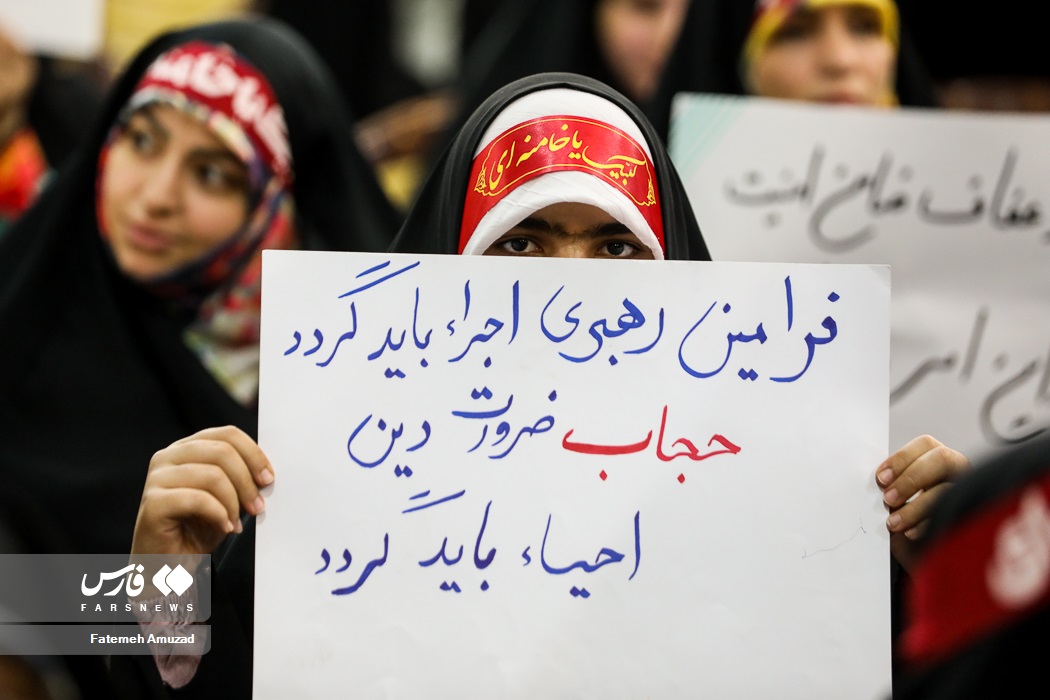 لبیک یا خامنه ای
فرامین رهبری اجراء باید گردد
حجاب ضرورت دین
احیاء باید گردد
عفاف ضامن امنیت
این امر
فارس
FARSNEWS
Fatemeh Amuzad